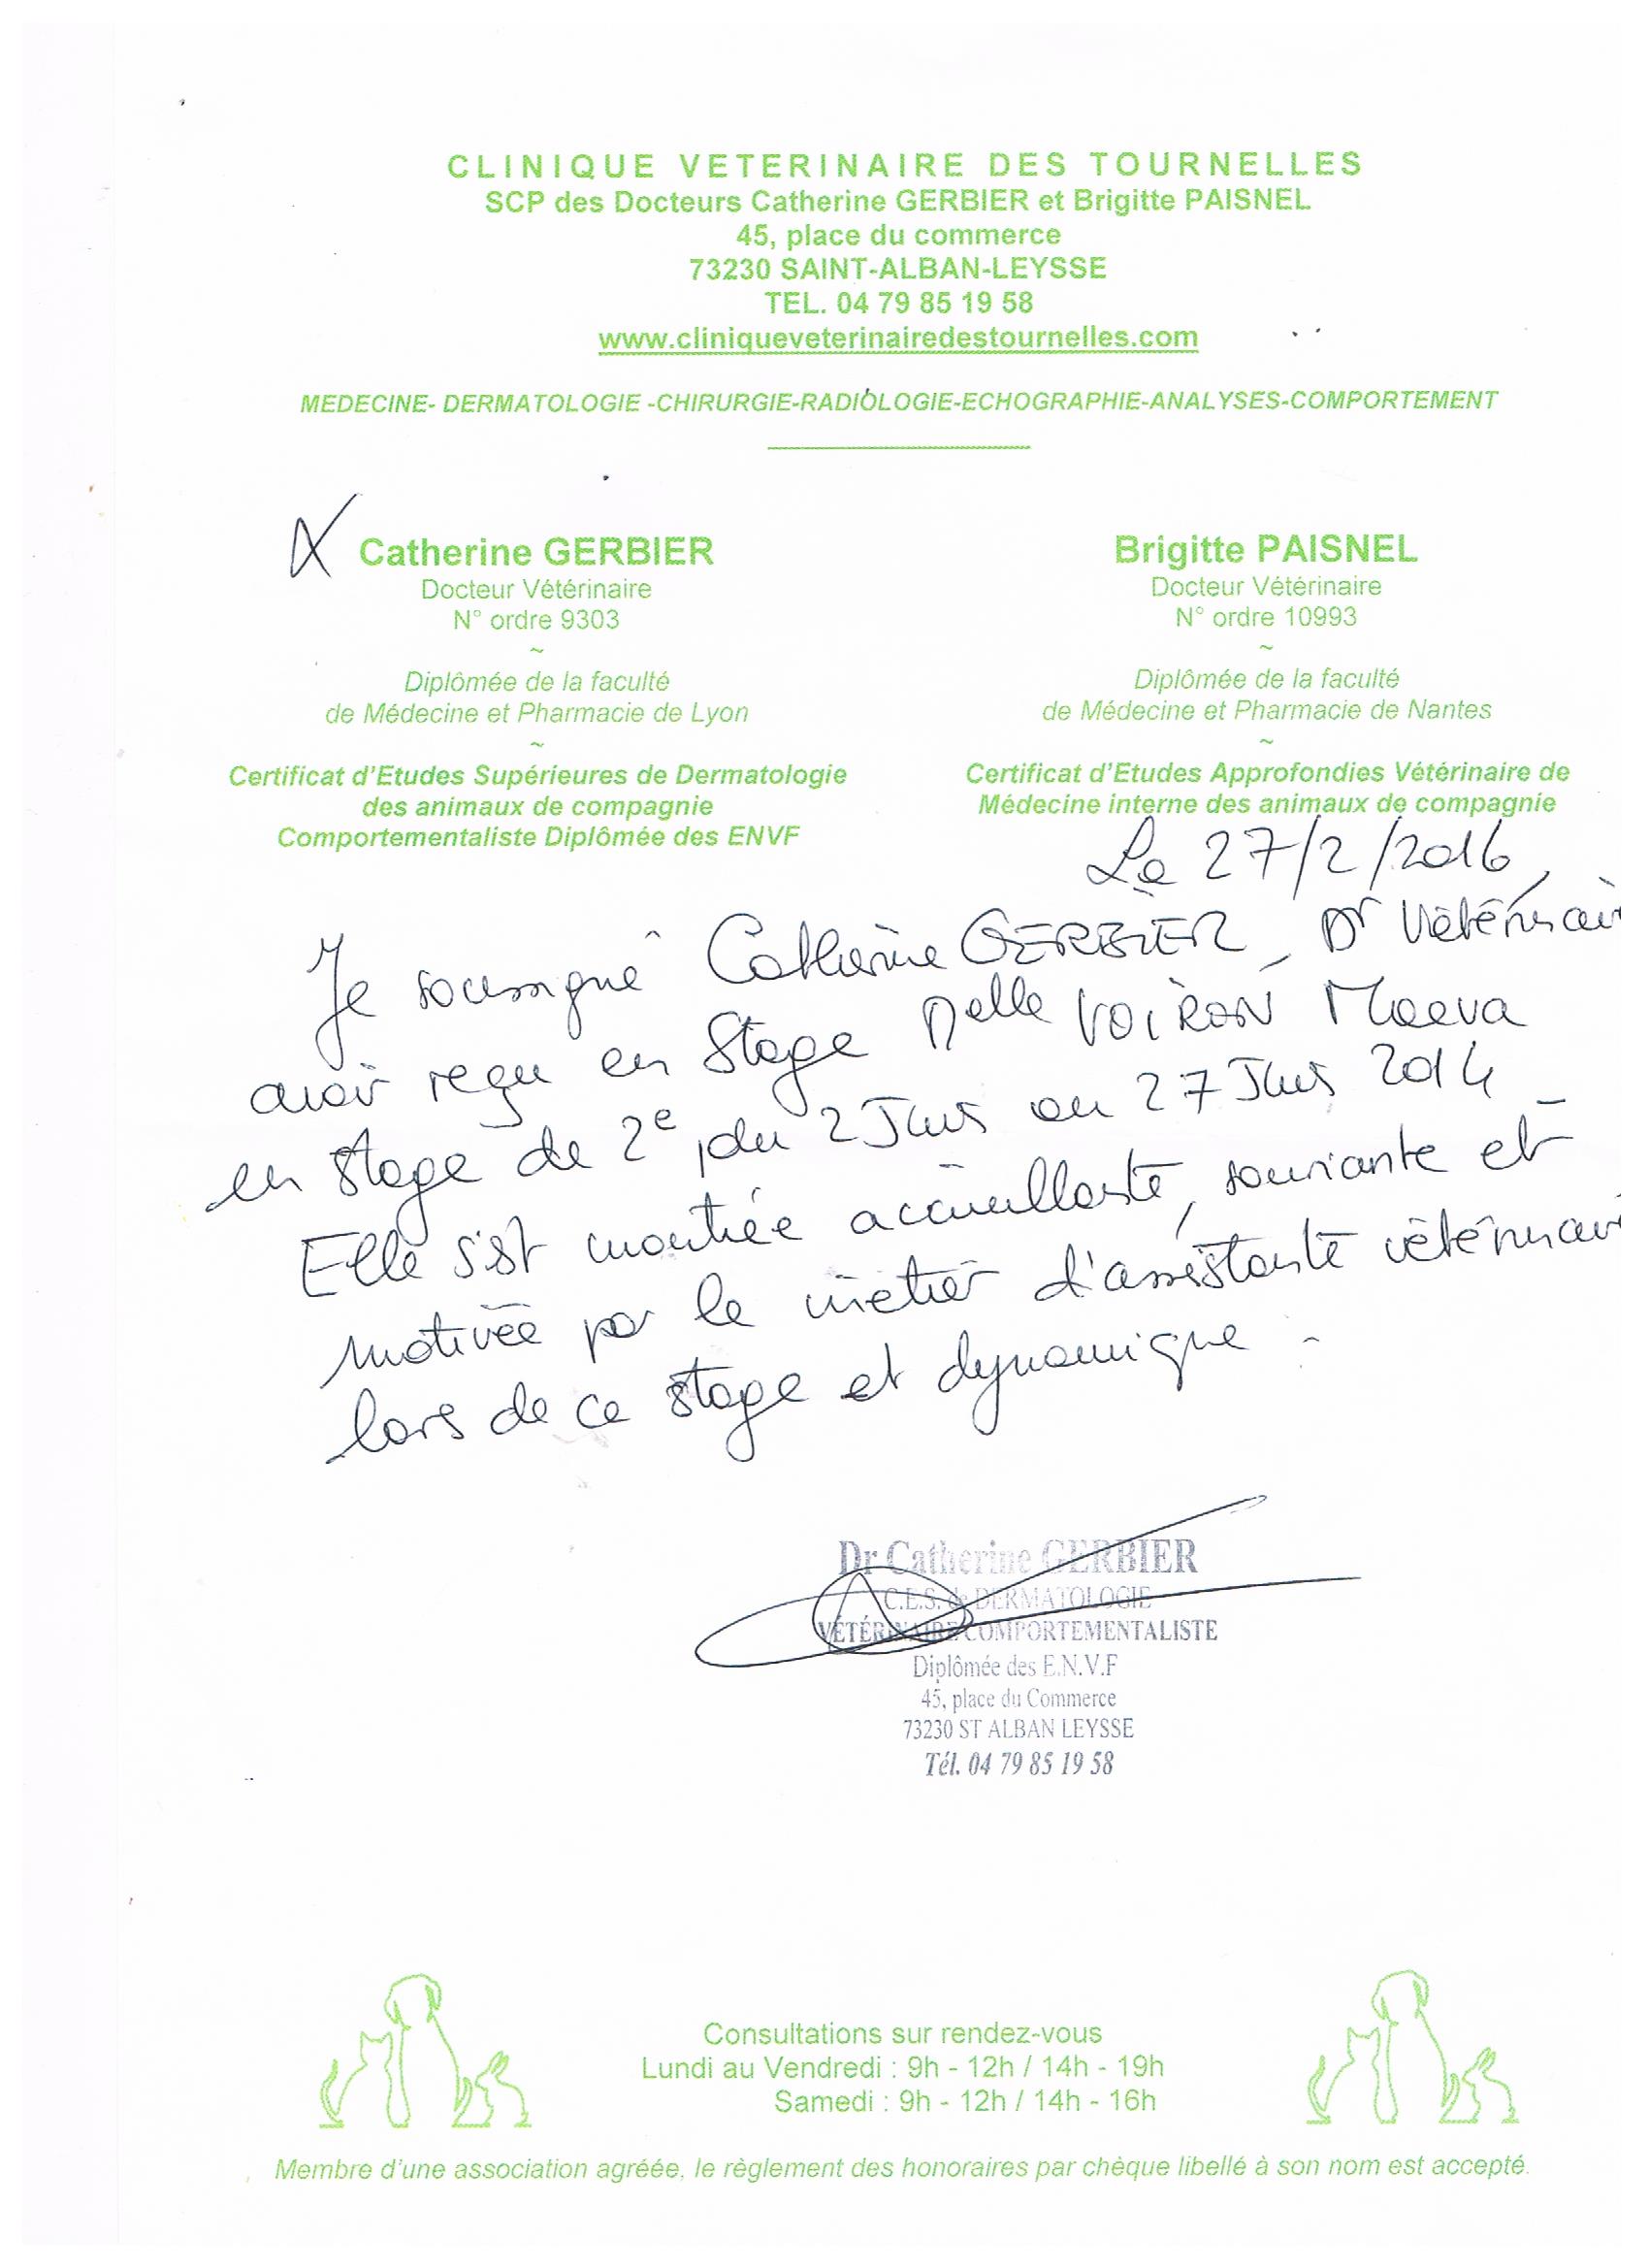 CLINIQUE VETERINAIRE DES TOURNELLES
SCP des Docteurs Catherine GERBIER et Brigitte PAISNEL
45, place du commerce
73230 SAINT-ALBAN-LEYSSE
TEL. 04 79 85 19 58
www.cliniqueveterinairedestournelles.com
MEDECINE- DERMATOLOGIE -CHIRURGIE-RADIOLOGIE-ECHOGRAPHIE-ANALYSES-COMPORTEMENT
Catherine GERBIER
Docteur Vétérinaire
N° ordre 9303
~
Diplômée de la faculté
de Médecine et Pharmacie de Lyon
~
Certificat d'Etudes Supérieures de Dermatologie
des animaux de compagnie
Comportementaliste Diplômée des ENVF
Brigitte PAISNEL
Docteur Vétérinaire
N° ordre 10993
~
Diplômée de la faculté
de Médecine et Pharmacie de Nantes
~
Certificat d'Etudes Approfondies Vétérinaire de
Médecine interne des animaux de compagnie
Le 27/2/2016
Je soussigné Catherine GERBIER, Dr Vétérinai
avoir reçu en stage Melle VOIRON Maeva
en stage de 2e, du 2 Juin au 27 Juin 2014
Elle s'est montrée accueillante, souriante et
motivée par le métier d'assistante vétérinai
lors de ce stage et dynamique.
Dr Catherine GERBIER
C.E.S. de DERMATOLOGIE
VÉTÉRINAIRE COMPORTEMENTALISTE
Diplômée des E.N.V.F
45, place du Commerce
73230 ST ALBAN LEYSSE
Tél. 04 79 85 19 58
Consultations sur rendez-vous
Lundi au Vendredi : 9h - 12h / 14h - 19h
Samedi : 9h - 12h / 14h - 16h
Membre d'une association agréée, le règlement des honoraires par chèque libellé à son nom est accepté.